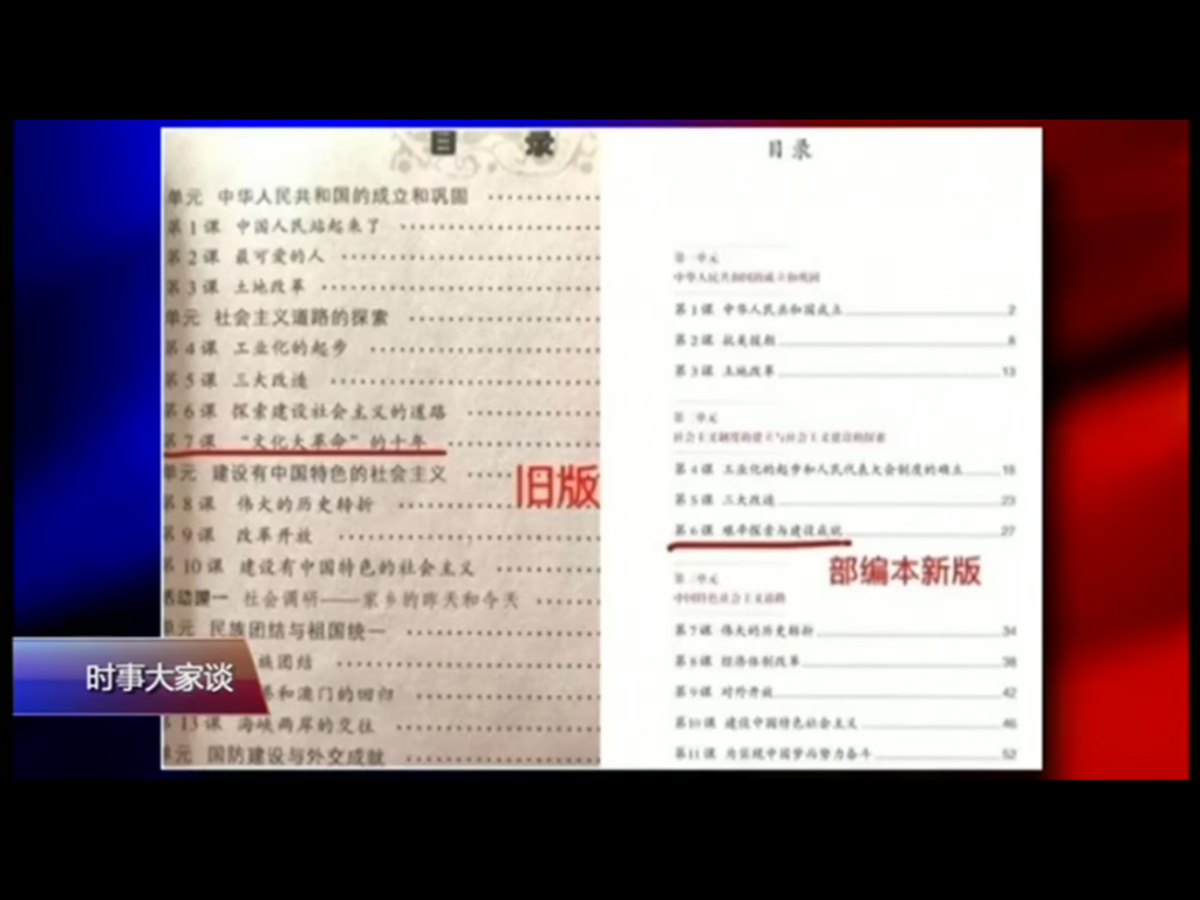 目 录
单元 中华人民共和国的成立和巩固
第1课 中国人民站起来了
第2课 最可爱的人
第3课 土地改革
单元 社会主义道路的探索
第4课 工业化的起步
第5课 三大改造
第6课 探索建设社会主义的道路
第7课 “文化大革命”的十年
单元 建设有中国特色的社会主义
第8课 伟大的历史转折
第9课 改革开放
第10课 建设有中国特色的社会主义
活动课一 社会调研——家乡的昨天和今天
单元 民族团结与祖国统一
族团结
和澳门的回归
13课 海峡两岸的交往
单元 国防建设与外交成就
旧版
目录
第一单元
中华人民共和国的成立和巩固
第1课 中华人民共和国成立 2
第2课 抗美援朝 8
第3课 土地改革 13
第二单元
社会主义制度的建立与社会主义建设的探索
第4课 工业化的起步和人民代表大会制度的确立 18
第5课 三大改造 23
第6课 艰辛探索与建设成就 27
部编本新版
第三单元
中国特色社会主义道路
第7课 伟大的历史转折 34
第8课 经济体制改革 38
第9课 对外开放 42
第10课 建设中国特色社会主义 46
第11课 为实现中国梦而努力奋斗 52
时事大家谈